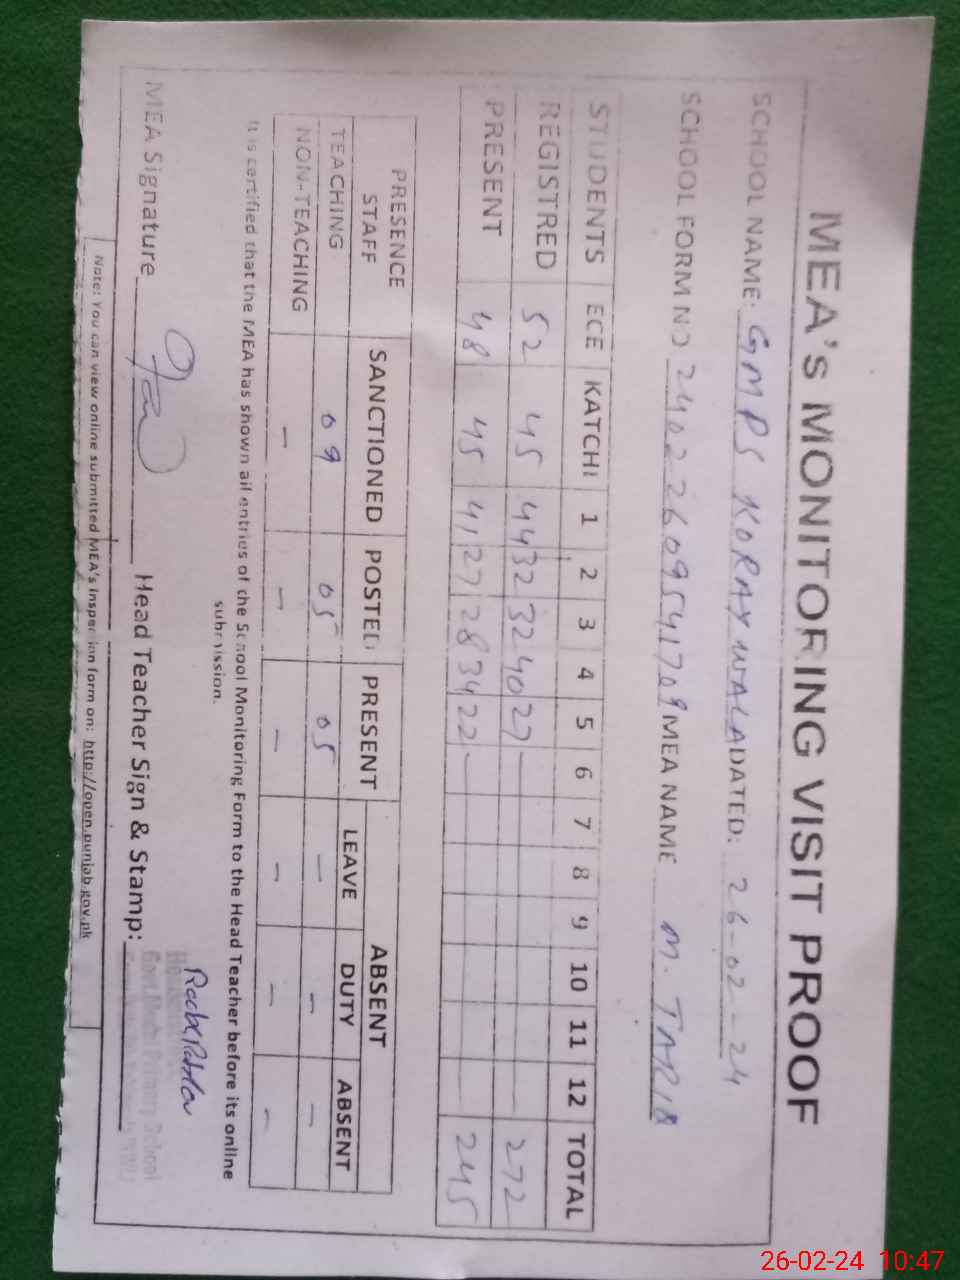 MEA's MONITORING VISIT PROOF
SCHOOL NAME: GMPS KORAY WALA DATED: 26-02-24
SCHOOL FORM NO 24022609541709 MEA NAME M. TARIQ
STUDENTS ECE KATCHI 1 2 3 4 5 6 7 8 9 10 11 12 TOTAL
REGISTRED 52 45 44 32 32 40 27 272
PRESENT 48 45 41 27 28 34 22 245
PRESENCE STAFF SANCTIONED POSTED PRESENT ABSENT
LEAVE DUTY ABSENT
TEACHING 09 05 05 - - -
NON-TEACHING - - - - - -
It is certified that the MEA has shown all entries of the School Monitoring Form to the Head Teacher before its online
submission.
MEA Signature Head Teacher Sign & Stamp:
Govt. Model Primary School
Note: You can view online submitted MEA's Inspection form on: http://open.punjab.gov.pk
26-02-24 10:47